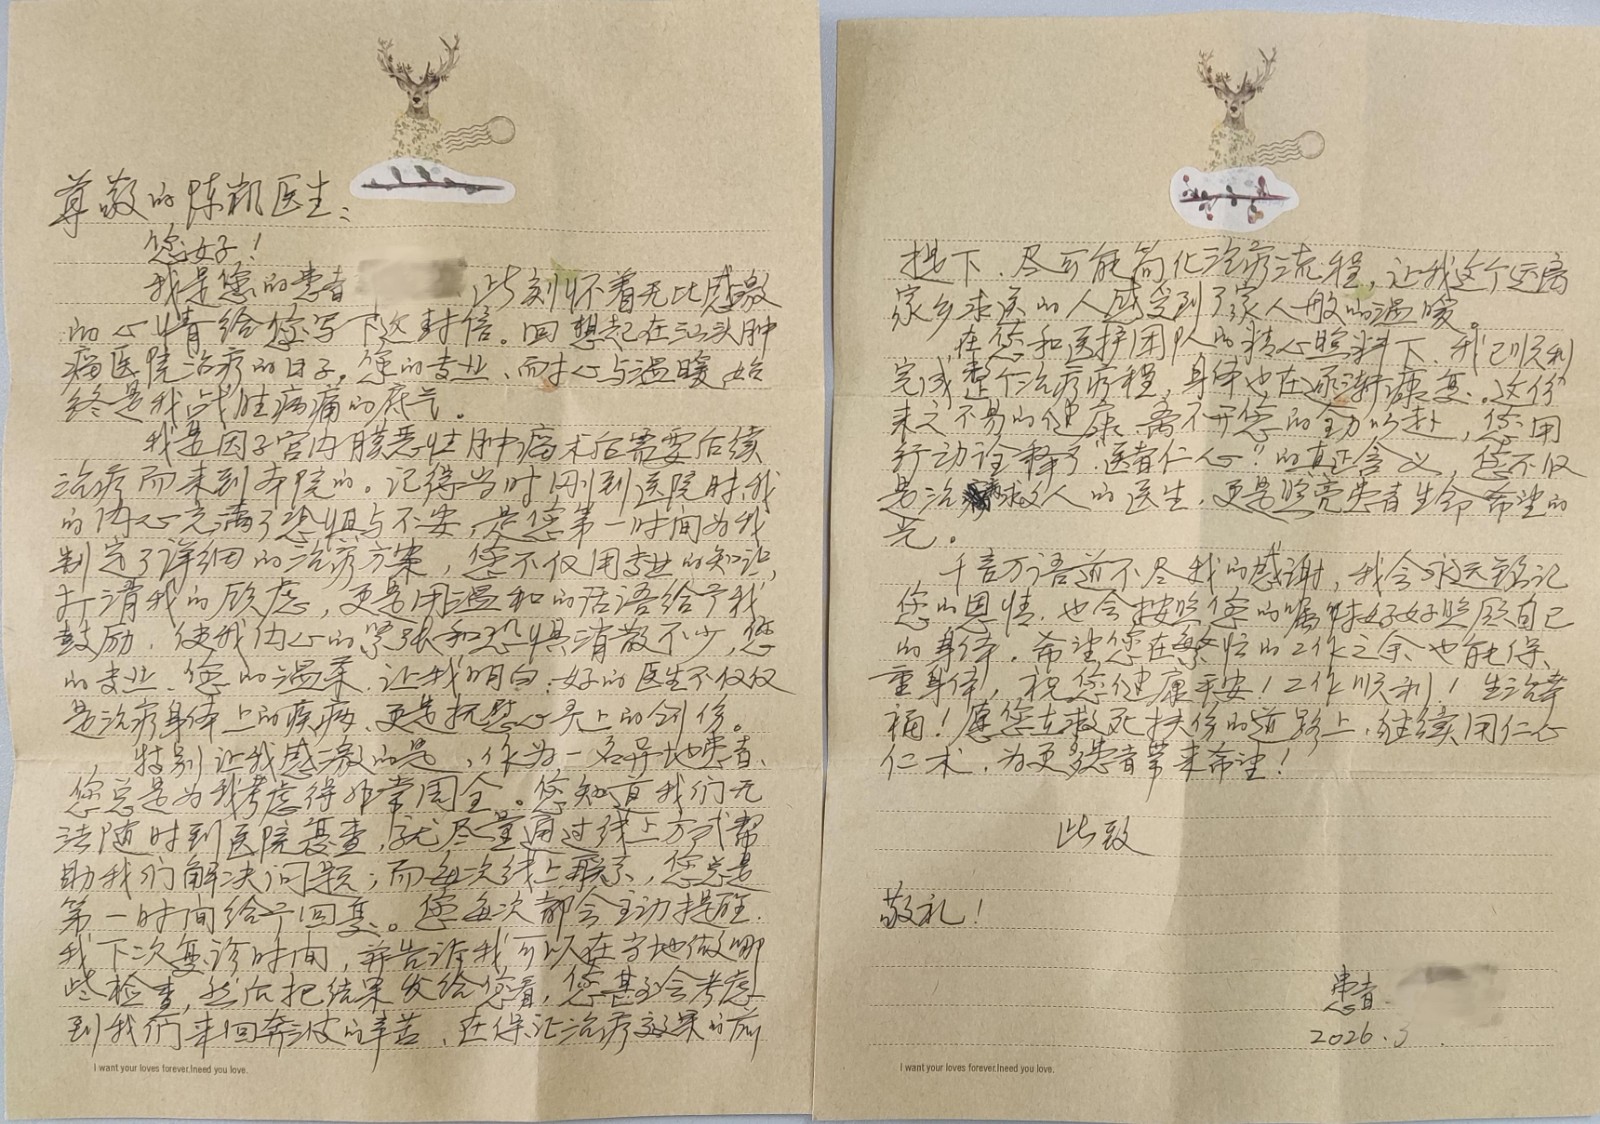 尊敬的陈凯医生：
您好！
我是您的患者 此刻怀着无比感激
的心情给您写下这封信。回想起在汕头肿
瘤医院治疗的日子，您的专业、耐心与温暖始
终是我战胜病痛的底气。
我是因子宫内膜恶性肿瘤术后需要后续
治疗而来到本院的。记得当时刚到医院时，我
的内心充满了恐惧与不安，是您第一时间为我
制定了详细的治疗方案，您不仅用专业的知识，
打消我的顾虑，更是用温和的话语给予我
鼓励，使我内心的紧张和恐惧消散不少，您
的专业、您的温柔，让我明白：好的医生不仅仅
是治疗身体上的疾病，更是抚慰心灵上的创伤。
特别让我感激的是，作为一名异地患者、
您总是为我考虑得非常周全。您知道我们无
法随时到医院复查，就尽量通过线上方式帮
助我们解决问题；而每次线上联系，您总是
第一时间给予回复。您每次都会主动提醒
我下次复诊时间，并告诉我可以在当地做哪
些检查，然后把结果发给您看，您甚至会考虑
到我们来回奔波的辛苦，在保证治疗效果的前
I want your loves forever.Ineed you love.
提下，尽可能简化治疗流程，让我这个远离
家乡求医的人感受到了家人般的温暖。
在您和医护团队的精心照料下，我已顺利
完成整个治疗疗程，身体也在逐渐康复。这份
来之不易的健康，离不开您的全力以赴，您用
行动诠释了“医者仁心”的真正含义，您不仅
是治病救人的医生，更是照亮患者生命希望的
光。
千言万语道不尽我的感谢，我会永远铭记
您的恩情，也会按照您的嘱咐好好照顾自己
的身体。希望您在繁忙的工作之余也能保
重身体，祝您健康平安！工作顺利！生活幸
福！愿您在救死扶伤的道路上，继续用仁心
仁术，为更多患者带来希望！
此致
敬礼！
患者：
2026.3
I want your loves forever.Ineed you love.